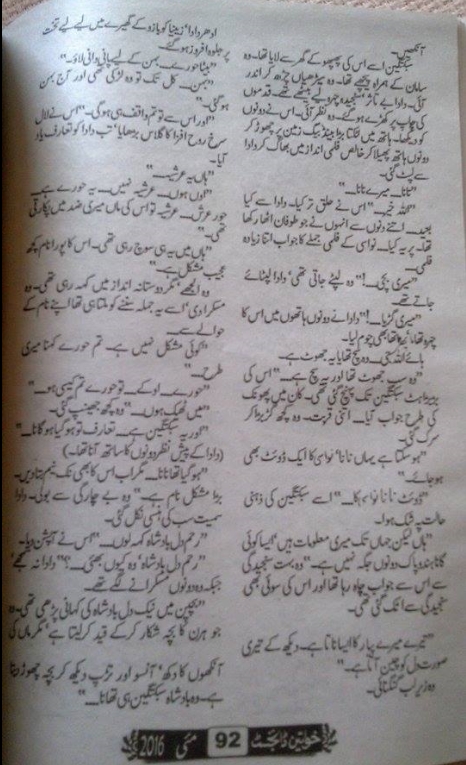 آنکھیں۔
سبکتگین اسے اس کی پھپھو کے گھر سے لایا تھا۔ وہ
سامان کے ہمراہ پیچھے تھا۔ وہ سیڑھیاں چڑھ کر اندر
آئی۔ دادا بے تاثر سنجیدہ چہرہ لیے بیٹھے تھے۔ قدموں
کی چاپ پر کھڑے ہو گئے۔ وہ نظر آئی۔ اس نے دونوں
کو دیکھا۔ ہاتھ میں لٹکتا بڑا ہینڈ بیگ زمین پر چھوڑ کر
دونوں ہاتھ پھیلا کر خالص فلمی انداز میں بھاگ کر دادا
سے لپٹ گئی۔
"نانا۔۔۔ میرے نانا۔۔۔"
"اللہ خیر۔" اس نے حلق تر کیا۔ دادا سے کیا
بعید۔ اتنے دنوں سے انہوں نے جو طوفان اٹھا رکھا
تھا۔ پر یہ کیا۔ نواسی کے فلمی جملے کا جواب اتنا زیادہ
فلمی۔
"میری بچی۔۔۔!" وہ لپٹے جاتی تھی' دادا لپٹائے
جاتے تھے۔
"میری گڑیا۔۔۔!" دادا نے دونوں ہاتھوں میں اس کا
چہرہ تھاما' پھر ماتھا بھی چوم لیا۔
ہائے اللہ سچی۔ وہ سچ تھا یا یہ جھوٹ ہے۔
"وہ سب جھوٹ تھا اور یہ سچ ہے۔۔۔" اس کی
بڑبڑاہٹ سبکتگین تک پہنچ گئی تھی۔ کان میں پھونک
کی طرح جواب آیا۔ اتنی قربت۔ وہ کچھ گڑبڑا کر
سرک گئی۔
"ہو سکتا ہے یہاں نانا' نواسی کا ایک ڈوئٹ بھی
ہو جائے۔"
"ڈوئٹ نانا نواسی کا۔۔۔" اسے سبکتگین کی ذہنی
حالت پہ شک ہوا۔
"ہاں لیکن جہاں تک میری معلومات ہیں' ایسا کوئی
گانا ہندو پاک دونوں جگہ نہیں ہے۔" وہ بہت سنجیدگی
سے اس سے جواب چاہ رہا تھا اور اس کی سوئی بھی
سنجیدگی سے اٹک گئی تھی۔
"تیرے میرے پیار کا ایسا ناتا ہے۔ دیکھ کے تیری
صورت دل کو چین آتا ہے۔"
وہ زیر لب گنگنائی۔
ادھر دادا' زینیا کو بازو کے گھیرے میں لیے لیے تخت
پر جلوہ افروز ہو گئے۔
"بیٹا حورے۔ بہن کے لیے پانی وانی لاؤ۔"
"بہن۔۔۔ کل تک تو وہ لڑکی تھی اور آج بہن
ہو گئی۔"
"اور اس سے تو تم واقف ہی ہو گی۔" اس نے لال
سرخ روح افزا کا گلاس بڑھایا' تب دادا کو تعارف یاد
آیا۔
"ہاں یہ عرشیہ۔۔۔"
"اوں ہوں۔ عرشیہ نہیں۔۔۔ یہ حورے ہے۔
حور عرش۔ عرشیہ تو اس کی ماں میری ضد میں پکارتی
تھی۔"
"ہاں میں یہ ہی سوچ رہی تھی۔ اس کا پورا نام کچھ
عجیب مشکل ہے۔"
وہ الجھے' مگر دوستانہ انداز میں کہہ رہی تھی۔ وہ
مسکرا دی' اسے یہ جملہ سننے کو ملتا ہی تھا اپنے نام کے
حوالے سے۔
"کوئی مشکل نہیں ہے۔ تم حورے کہنا میری
طرح۔"
"حورے۔۔۔ اوکے۔۔۔ تو حورے تم کیسی ہو۔۔۔"
"میں ٹھیک ہوں۔۔۔" وہ کچھ جھینپ گئی۔
"اور یہ سبکتگین ہے۔۔۔ تعارف تو ہو گیا ہو گا نا۔۔۔"
(دادا کے پیش نظر دونوں کا ساتھ آنا تھا۔)
"ہو گیا تھا نانا۔۔۔ مگر اب اس کا بھی نک نیم بتا دیں۔
بڑا مشکل نام ہے۔" وہ بے چارگی سے بولی۔ دادا
سمیت سب کی ہنسی نکل گئی۔
"رحم دل بادشاہ کہہ لوں۔۔۔" اس نے آپشن دیا۔
"رحم دل بادشاہ' وہ کیوں بھئی۔۔۔؟" دادا نہ سمجھے'
جبکہ وہ دونوں مسکرانے لگے تھے۔
"بچپن میں نیک دل بادشاہ کی کہانی پڑھی تھی۔ وہ
جو ہرن کا بچہ شکار کر کے قید کر لیتا ہے' مگر ماں کی
آنکھوں کا دکھ' آنسو اور تڑپ دیکھ کر بچہ چھوڑ دیتا
ہے۔ وہ بادشاہ سبکتگین ہی تھا نا۔۔۔"
خواتین ڈائجسٹ 92 مئی 2016